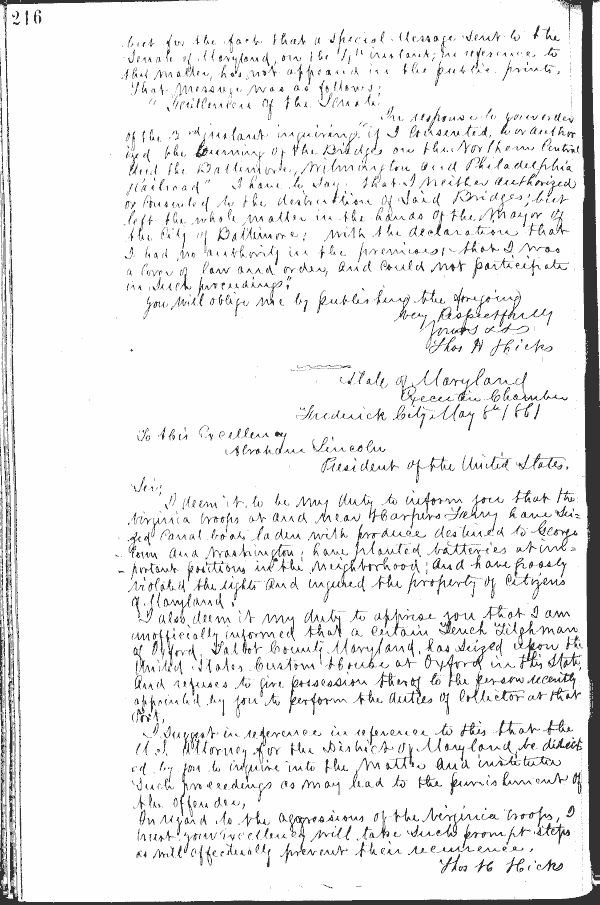 216
but for the fact that a special Message sent to the
Senate of Maryland, on the 4th instant, in reference to
this matter, has not appeared in the public prints.
That message was as follows;
"Gentlemen of the Senate
In response to your order
of the 3rd instant inquiring "if I consented, or author
ized the burning of the Bridges on the Northern Central
and the Baltimore, Wilmington and Philadelphia
Railroad" I have to say; that I neither authorized
or consented to the destruction of said Bridges; but
left the whole matter in the hands of the Mayor of
the City of Baltimore; with the declaration that
I had no authority in the premises; that I was
a lover of law and order, and could not participate
in such proceedings."
You will oblige me by publishing the foregoing
Very Respectfully
Yours &c
Thos H Hicks
State of Maryland
Executive Chamber
Frederick City May 8th 1861
To His Excellency
Abraham Lincoln
President of the United States.
Sir;
I deem it to be my duty to inform you that the
Virginia troops at and near Harpers Ferry have sei-
zed canal boats laden with produce destined to George
town and Washington; have planted batteries at im-
portant positions in the neighborhood; and have grossly
violated the rights and injured the property of citizens
of Maryland.
I also deem it my duty to apprise you that I am
unofficially informed that a certain Tench Tilghman
of Oxford, Talbot County, Maryland, has seized upon the
United States Custom House at Oxford in this State,
and refuses to give possession therof to the person recently
appointed by you to perform the duties of Collector at that
Port,
I suggest in reference in reference to this that the
U.S. Attorney for the District of Maryland be direct
ed by you to inquire into the matter and institute
such proceedings as may lead to the punishment of
the offender,
In regard to the aggressions of the Virginia troops, I
trust your Excellency will take such prompt steps
as will effectually prevent their recurrence.
Thos H Hicks